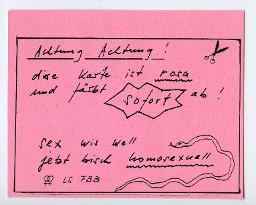 Achtung Achtung!
diese Karte ist rosa
und färbt sofort ab!
sex wie well
jetzt bisch homosexuell
LS 788